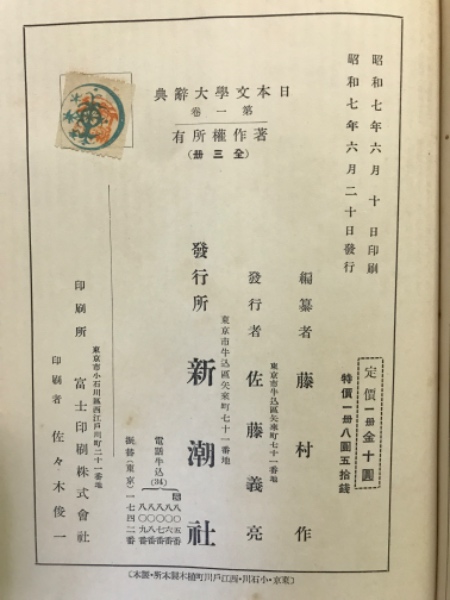 昭和七年六月十日印刷
昭和七年六月二十日發行
日本文學大辭典
第一卷
著作權所有
(全三册)
定價一册金十圓
特價一册八圓五拾錢
編纂者 藤村作
東京市牛込區矢來町七十一番地
發行者 佐藤義亮
東京市牛込區矢來町七十一番地
發行所 新潮社
電話牛込(34)
八〇五番
八〇六番
八〇七番
八〇八番
八〇九番
振替(東京)一七四二番
東京市小石川區西江戸川町二十一番地
印刷所 富士印刷株式會社
印刷者 佐々木俊一
(東京・小石川・西江戸川町植木製本所・製本)